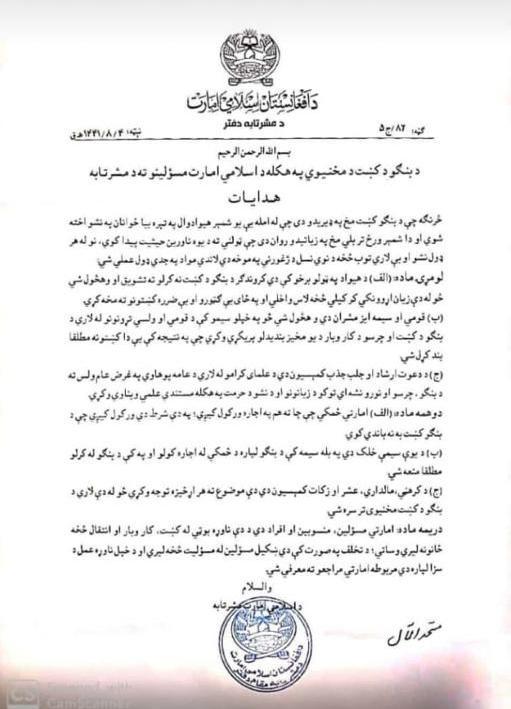 د افغانستان اسلامي امارت
د مشرتابه دفتر
ګڼه: ۸۲/ج۵
نېټه: ۱۴۴۱/۸/۴هـ ق
بسم الله الرحمن الرحیم
د بنګو د کښت د مخنیوي په هکله د اسلامي امارت مسؤلینو ته د مشرتابه
هدایات
څرنګه چې د بنګو کښت مخ په ډیریدو دی چې له امله یې یو شمېر هیوادوال په تېره بیا ځوانان په نشو اخته
شوي او دا شمېر ورځ تر بلې مخ په زیاتېدو روان دی چې ټولنې ته د یوه ناورین حیثیت پیدا کوي، نو له هر
ډول نشو او بې لارۍ توب څخه د نوي نسل د ژغورنې په موخه دې لاندې مواد په جدي ډول عملي شي:
لومړۍ ماده: (الف) د هیواد په ټولو برخو کې دې کروندګر د بنګو د کښت نه کولو ته تشویق او وهڅول شي
څو له دې زیان اړوونکي کر کیلې څخه لاس واخلي او په ځای یې ګټورو او بې ضرره کښتونو ته مخه کړي.
(ب) قومي او سیمه ایز مشران دې وهڅول شي څو په خپلو سیمو کې د قومي او ولسي تړونونو له لارې د
بنګو د کښت او چرسو د کار وبار د یو مخیز بندیدلو پرېکړې وکړي چې په نتیجه کې یې دا کښتونه مطلقا
بند کړل شي.
(ج) د دعوت ارشاد او جلب جذب کمېسیون دې د علمای کرامو له لارې د عامه پوهاوي په غرض عام ولس ته
د بنګو، چرسو او نورو نشه ای توکو د زیانونو او د نشو د حرمت په هکله مستندې علمي ویناوې وکړي.
دوهمه ماده: (الف) امارتي ځمکې چې چا ته هم په اجاره ورکول کیږي؛ په دې شرط دې ورکول کیږي چې د
بنګو کښت به نه باندې کوي.
(ب) د یوې سیمې خلک دې په بله سیمه کې د بنګو لپاره د ځمکې له اجاره کولو او په کې د بنګو له کرلو
مطلقا منعه شي.
(ج) د کرهڼې، مالدارۍ، عشر او زکات کمېسیون دې دې موضوع ته هر اړخیزه توجه وکړي څو له دې لارې د
بنګو د کښت مخنیوی تر سره شي.
دریمه ماده: امارتي مسؤلین، منسوبین او افراد دې د دې ناوړه بوټي له کښت، کار وبار او انتقال څخه
ځانونه لیرې وساتي؛ د تخلف په صورت کې دې ښکیل مسؤلین له مسؤلیت څخه لیرې او د خپل ناوړه عمل د
سزا لپاره دې مربوطه امارتي مراجعو ته معرفي شي.
والسلام
د اسلامي امارت مشرتابه
د افغانستان اسلامي امارت
CS Scanned with
CamScanner